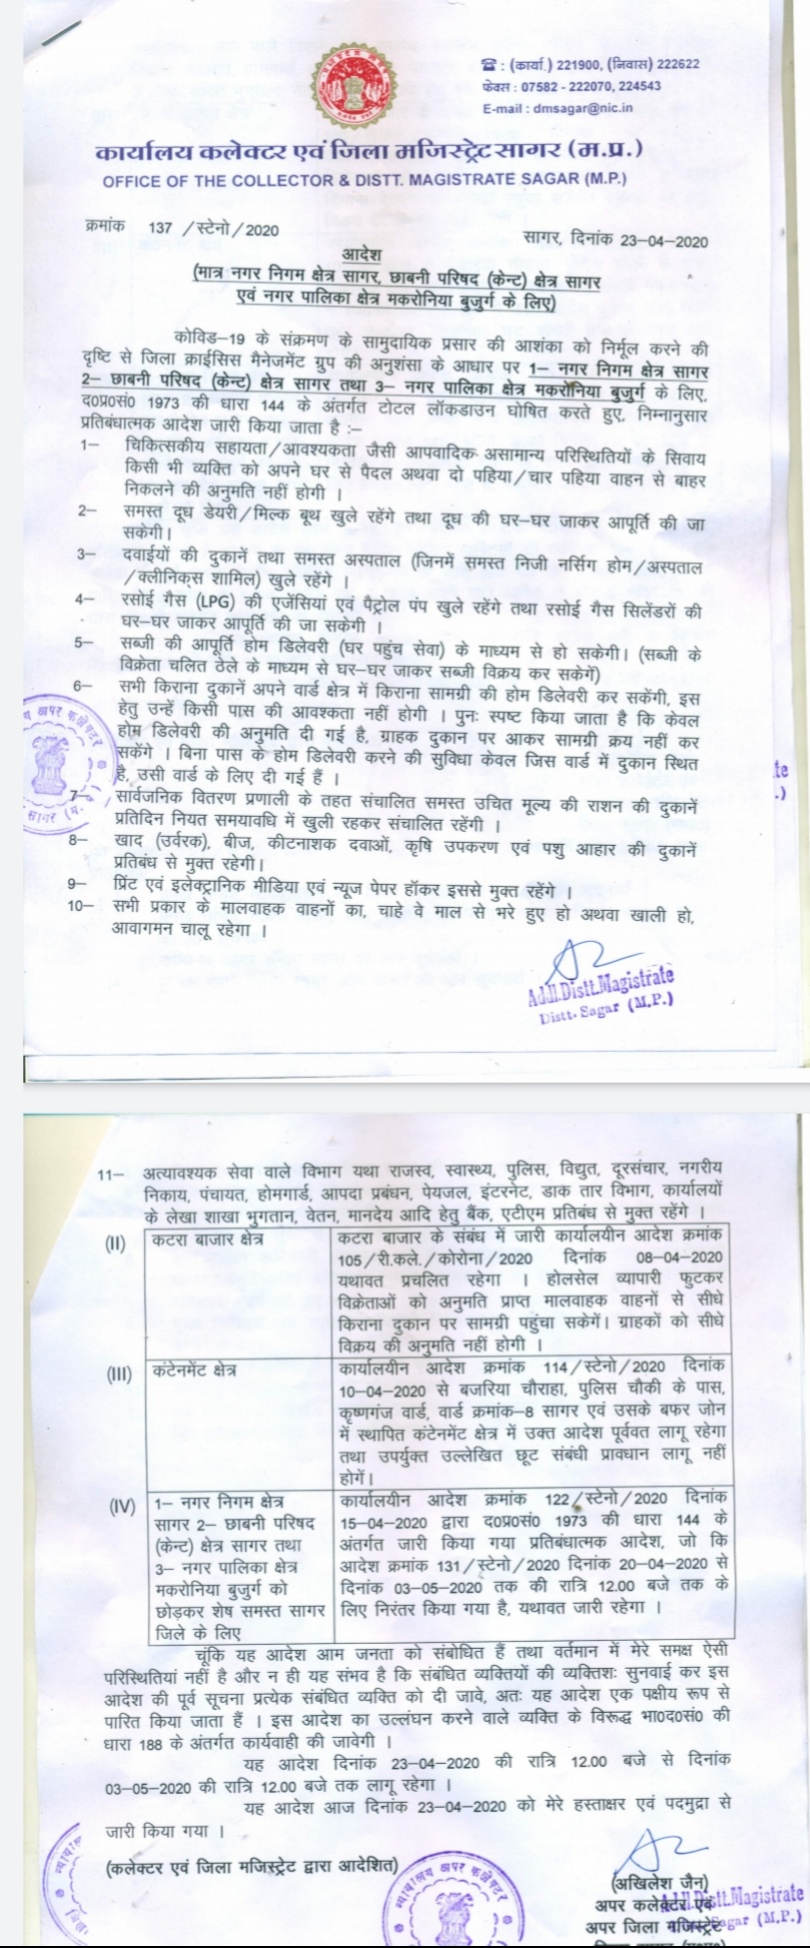 ☎ : (कार्या.) 221900, (निवास) 222622
फेक्स : 07582 - 222070, 224543
E-mail : dmsagar@nic.in
कार्यालय कलेक्टर एवं जिला मजिस्ट्रेट सागर (म.प्र.)
OFFICE OF THE COLLECTOR & DISTT. MAGISTRATE SAGAR (M.P.)
क्रमांक 137 /स्टेनो/2020
सागर, दिनांक 23-04-2020
आदेश
(मात्र नगर निगम क्षेत्र सागर, छाबनी परिषद (केन्ट) क्षेत्र सागर
एवं नगर पालिका क्षेत्र मकरोनिया बुजुर्ग के लिए)
कोविड-19 के संक्रमण के सामुदायिक प्रसार की आशंका को निर्मूल करने की
दृष्टि से जिला क्राईसिस मैनेजमेंट ग्रुप की अनुशंसा के आधार पर 1- नगर निगम क्षेत्र सागर
2- छाबनी परिषद (केन्ट) क्षेत्र सागर तथा 3- नगर पालिका क्षेत्र मकरोनिया बुजुर्ग के लिए,
द0प्र0सं0 1973 की धारा 144 के अंतर्गत टोटल लॉकडाउन घोषित करते हुए, निम्नानुसार
प्रतिबंधात्मक आदेश जारी किया जाता है :-
1- चिकित्सकीय सहायता/आवश्यकता जैसी आपवादिक असामान्य परिस्थितियों के सिवाय
किसी भी व्यक्ति को अपने घर से पैदल अथवा दो पहिया/चार पहिया वाहन से बाहर
निकलने की अनुमति नहीं होगी ।
2- समस्त दूध डेयरी/मिल्क बूथ खुले रहेंगे तथा दूध की घर-घर जाकर आपूर्ति की जा
सकेगी।
3- दवाईयों की दुकानें तथा समस्त अस्पताल (जिनमें समस्त निजी नर्सिंग होम/अस्पताल
/क्लीनिक्स शामिल) खुले रहेंगे ।
4- रसोई गैस (LPG) की एजेंसियां एवं पैट्रोल पंप खुले रहेंगे तथा रसोई गैस सिलेंडरों की
घर-घर जाकर आपूर्ति की जा सकेगी ।
5- सब्जी की आपूर्ति होम डिलेवरी (घर पहुंच सेवा) के माध्यम से हो सकेगी। (सब्जी के
विक्रेता चलित ठेले के माध्यम से घर-घर जाकर सब्जी विक्रय कर सकेगें)
6- सभी किराना दुकानें अपने वार्ड क्षेत्र में किराना सामग्री की होम डिलेवरी कर सकेंगी, इस
हेतु उन्हें किसी पास की आवश्कता नहीं होगी । पुनः स्पष्ट किया जाता है कि केवल
होम डिलेवरी की अनुमति दी गई है, ग्राहक दुकान पर आकर सामग्री क्रय नहीं कर
सकेंगे । बिना पास के होम डिलेवरी करने की सुविधा केवल जिस वार्ड में दुकान स्थित
है, उसी वार्ड के लिए दी गई हैं ।
7- सार्वजनिक वितरण प्रणाली के तहत संचालित समस्त उचित मूल्य की राशन की दुकानें
प्रतिदिन नियत समयावधि में खुली रहकर संचालित रहेंगी ।
8- खाद (उर्वरक), बीज, कीटनाशक दवाओं, कृषि उपकरण एवं पशु आहार की दुकानें
प्रतिबंध से मुक्त रहेगी।
9- प्रिंट एवं इलेक्ट्रानिक मीडिया एवं न्यूज पेपर हॉकर इससे मुक्त रहेंगे ।
10- सभी प्रकार के मालवाहक वाहनों का, चाहे वे माल से भरे हुए हो अथवा खाली हो,
आवागमन चालू रहेगा ।
Addl.Distt.Magistrate
Distt. Sagar (M.P.)
11- अत्यावश्यक सेवा वाले विभाग यथा राजस्व, स्वास्थ्य, पुलिस, विद्युत, दूरसंचार, नगरीय
निकाय, पंचायत, होमगार्ड, आपदा प्रबंधन, पेयजल, इंटरनेट, डाक तार विभाग, कार्यालयों
के लेखा शाखा भुगतान, वेतन, मानदेय आदि हेतु बैंक, एटीएम प्रतिबंध से मुक्त रहेंगे ।
(II) कटरा बाजार क्षेत्र
कटरा बाजार के संबंध में जारी कार्यालयीन आदेश क्रमांक
105/री.कले./कोरोना/2020 दिनांक 08-04-2020
यथावत प्रचलित रहेगा । होलसेल व्यापारी फुटकर
विक्रेताओं को अनुमति प्राप्त मालवाहक वाहनों से सीधे
किराना दुकान पर सामग्री पहुंचा सकेगें। ग्राहकों को सीधे
विक्रय की अनुमति नहीं होगी ।
(III) कंटेनमेंट क्षेत्र
कार्यालयीन आदेश क्रमांक 114/स्टेनो/2020 दिनांक
10-04-2020 से बजरिया चौराहा, पुलिस चौकी के पास,
कृष्णगंज वार्ड, वार्ड क्रमांक-8 सागर एवं उसके बफर जोन
में स्थापित कंटेनमेंट क्षेत्र में उक्त आदेश पूर्ववत लागू रहेगा
तथा उपर्युक्त उल्लेखित छूट संबंधी प्रावधान लागू नहीं
होगें।
(IV) 1- नगर निगम क्षेत्र
सागर 2- छाबनी परिषद
(केन्ट) क्षेत्र सागर तथा
3- नगर पालिका क्षेत्र
मकरोनिया बुजुर्ग को
छोड़कर शेष समस्त सागर
जिले के लिए
कार्यालयीन आदेश क्रमांक 122/स्टेनो/2020 दिनांक
15-04-2020 द्वारा द0प्र0सं0 1973 की धारा 144 के
अंतर्गत जारी किया गया प्रतिबंधात्मक आदेश, जो कि
आदेश क्रमांक 131/स्टेनो/2020 दिनांक 20-04-2020 से
दिनांक 03-05-2020 तक की रात्रि 12.00 बजे तक के
लिए निरंतर किया गया है, यथावत जारी रहेगा ।
चूंकि यह आदेश आम जनता को संबोधित हैं तथा वर्तमान में मेरे समक्ष ऐसी
परिस्थितियां नहीं है और न ही यह संभव है कि संबंधित व्यक्तियों की व्यक्तिशः सुनवाई कर इस
आदेश की पूर्व सूचना प्रत्येक संबंधित व्यक्ति को दी जावे, अतः यह आदेश एक पक्षीय रूप से
पारित किया जाता हैं । इस आदेश का उल्लंघन करने वाले व्यक्ति के विरूद्ध भा0द0सं0 की
धारा 188 के अंतर्गत कार्यवाही की जावेगी ।
यह आदेश दिनांक 23-04-2020 की रात्रि 12.00 बजे से दिनांक
03-05-2020 की रात्रि 12.00 बजे तक लागू रहेगा ।
यह आदेश आज दिनांक 23-04-2020 को मेरे हस्ताक्षर एवं पदमुद्रा से
जारी किया गया ।
(कलेक्टर एवं जिला मजिस्ट्रेट द्वारा आदेशित)
(अखिलेश जैन)
अपर कलेक्टर एवं
अपर जिला मजिस्ट्रेट